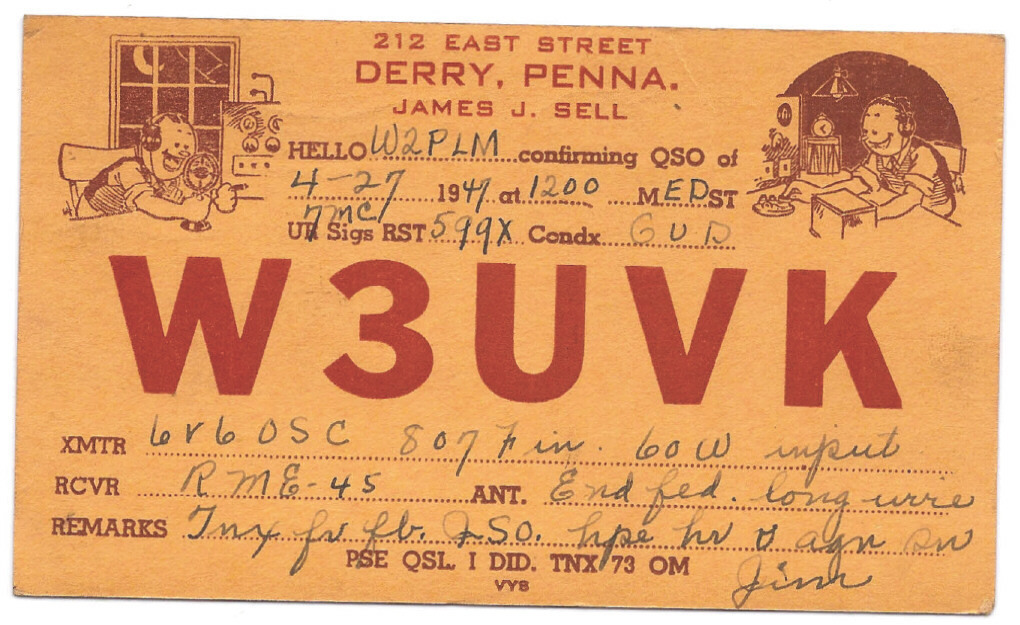 212 EAST STREET
DERRY, PENNA.
JAMES J. SELL
HELLO W2PLM confirming QSO of
4-27 1947 at 1200 M EDST
7mc
UR Sigs RST 599X Condx GUD
W3UVK
XMTR 6V6 OSC 807 Fin. 60W input
RCVR RME-45 ANT. End fed. long wire
REMARKS Tnx fr fb. QSO. hpe hr u agn sn
PSE QSL. I DID. TNX 73 OM
Jim
VYB